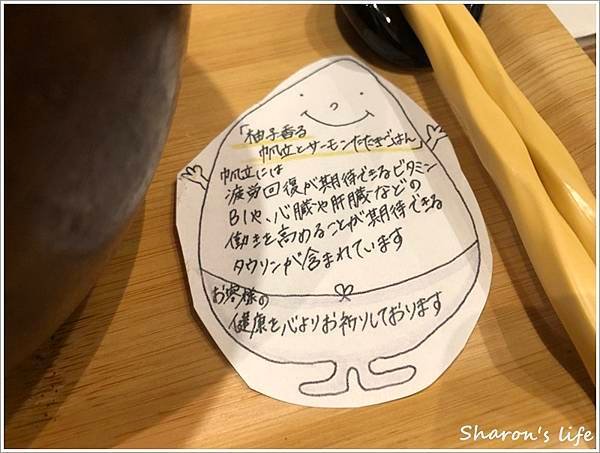 「柚子香る
帆立とサーモンたたきごはん」
帆立には
疲労回復が期待できるビタミン
B1や、心臓や肝臓などの
働きを高めることが期待できる
タウリンが含まれています
お客様の
健康を心よりお祈りしております
Sharon's life